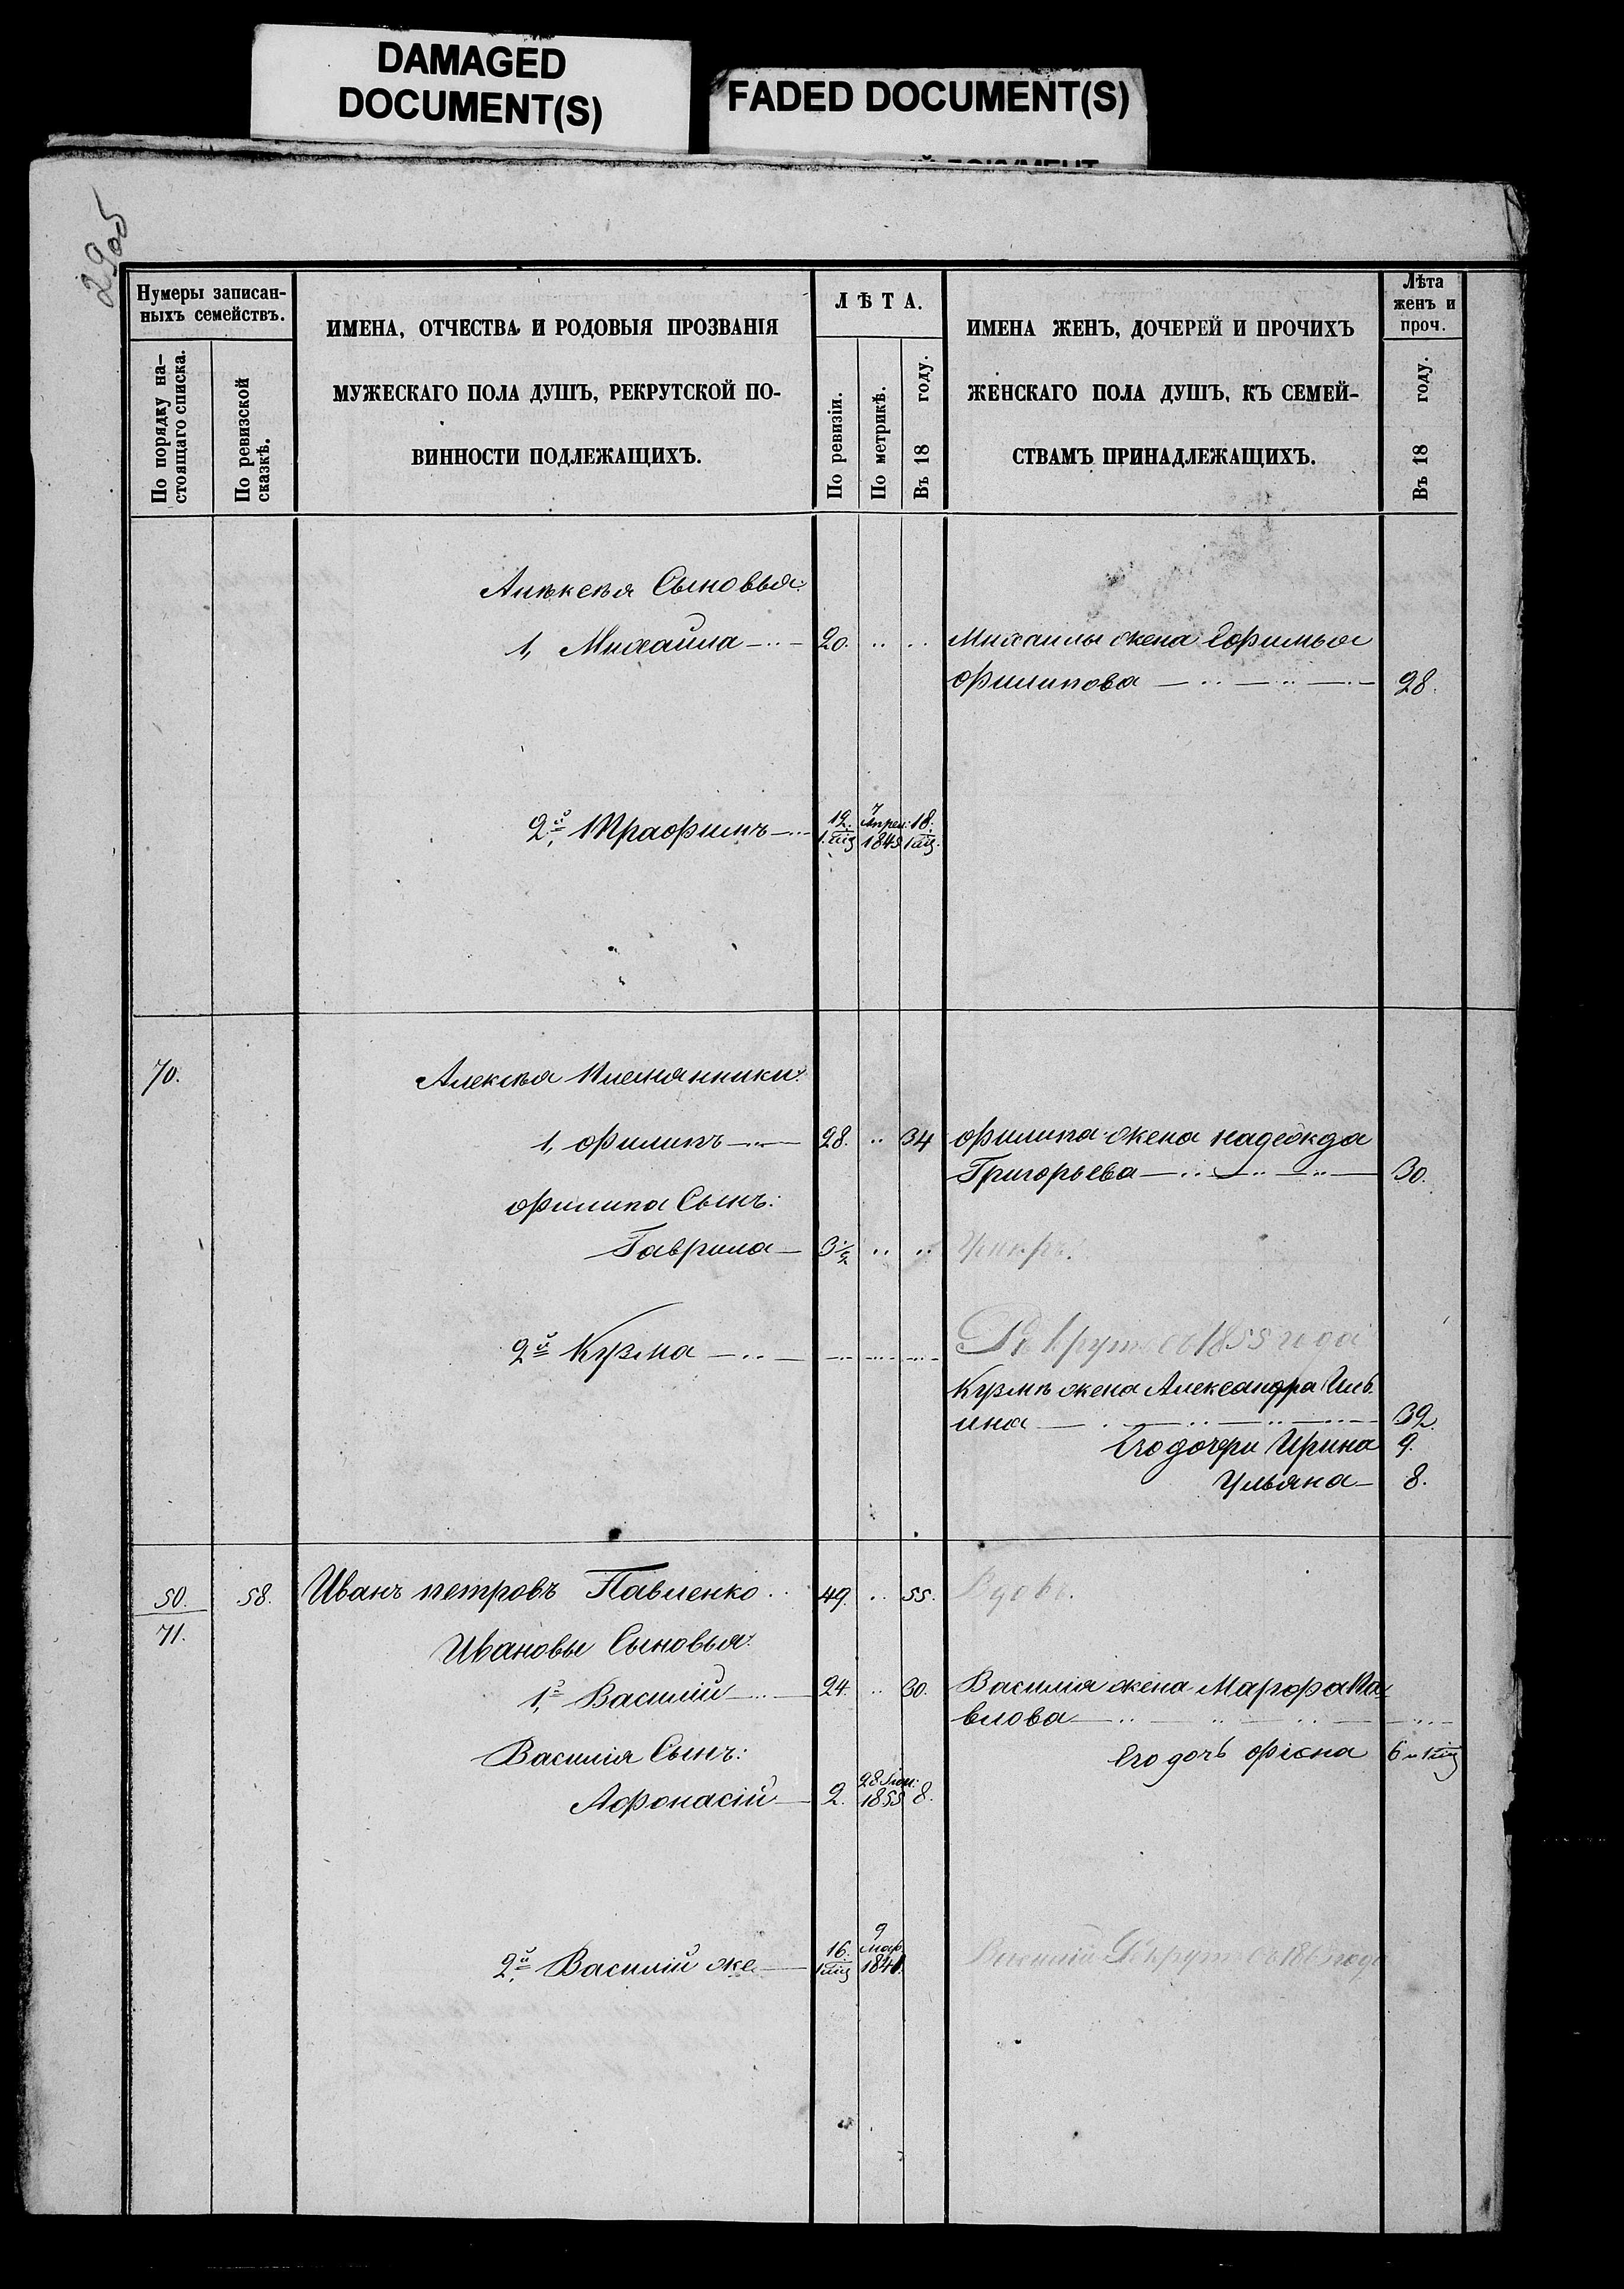 DAMAGED
DOCUMENT(S)
FADED DOCUMENT(S)
Нумеры записан-
ныхъ семействъ.
По порядку на-
стоящаго списка.
По ревизской
сказкѣ.
ИМЕНА, ОТЧЕСТВА И РОДОВЫЯ ПРОЗВАНІЯ
МУЖЕСКАГО ПОЛА ДУШЪ, РЕКРУТСКОЙ ПО-
ВИННОСТИ ПОДЛЕЖАЩИХЪ.
ЛѢТА.
По ревизіи.
По метрикѣ.
Въ 18 году.
ИМЕНА ЖЕНЪ, ДОЧЕРЕЙ И ПРОЧИХЪ
ЖЕНСКАГО ПОЛА ДУШЪ, КЪ СЕМЕЙ-
СТВАМЪ ПРИНАДЛЕЖАЩИХЪ.
Лѣта
женъ и
проч.
Въ 18 году.
Алѣксѣя Сыновья:
1, Михайла 20. Михаилы жена Ефимья
Филипова 28.
2й Трафимъ 12. 7 Апрел: 18.
1849
70. Алексѣя племянники:
1, Филипъ 28. 34 Филипа жена надежда
Григорьева 30.
Филипа Сынъ:
Гаврила 3½
2й Кузма Рекрутъ съ 1855 года
Кузмы жена Александра Иль
ина 32.
Его дочери Ирина 9.
Ульяна 8.
50. 58. Иванъ петровъ Павленко 49. 55. Вдовъ.
71.
Ивановы Сыновья:
1й Василий 24. 30. Василия жена Марфа Па
влова
Василія Сынъ: Его дочь Фіона 6
Афонасій 2. 28 1855 8.
2й Василий же 16. 9 мар. 1841. Василий Рекрутъ съ года